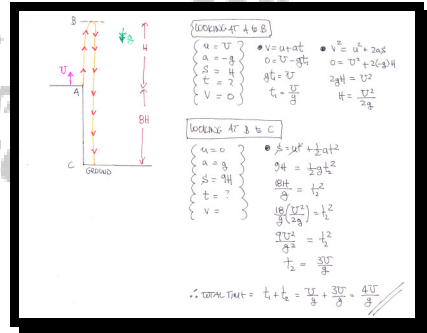 B
g
H
U
A
8H
C
GROUND
LOOKING AT A to B
u = U
a = -g
s = H
t = ?
v = 0
• v = u + at
0 = U - gt₁
gt₁ = U
t₁ = U/g
• v² = u² + 2as
0 = U² + 2(-g)H
2gH = U²
H = U²/2g
LOOKING AT B to C
u = 0
a = g
s = 9H
t = ?
v =
• s = ut + ½at²
9H = ½gt₂²
18H/g = t₂²
18/g (U²/2g) = t₂²
9U²/g² = t₂²
t₂ = 3U/g
∴ TOTAL TIME = t₁ + t₂ = U/g + 3U/g = 4U/g